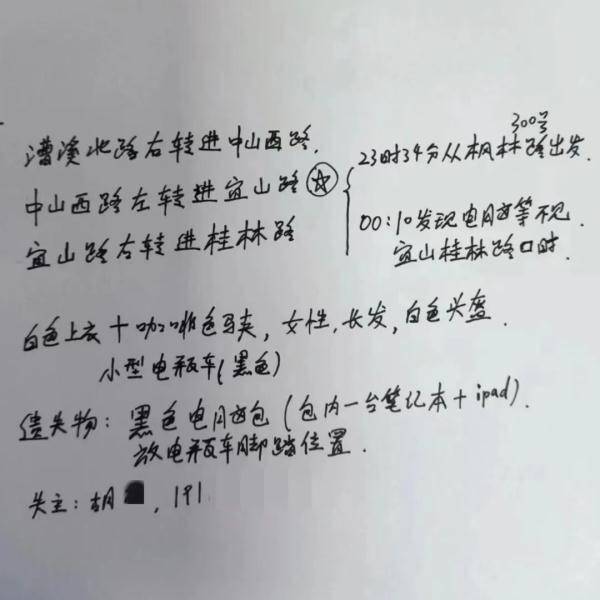 漕溪北路右转进中山西路.
中山西路左转进宜山路☆
宜山路右转进桂林路
300号
23时34分从枫林路出发.
00:10发现电脑等不见.
宜山桂林路口时.
白色上衣+咖啡色马夹,女性,长发,白色头盔.
小型电瓶车(黑色)
遗失物:黑色电脑包(包内一台笔记本+ipad).
放电瓶车脚踏位置.
失主:胡 ,191